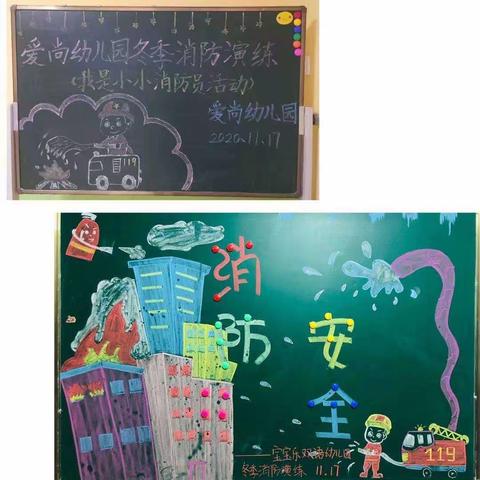 爱尚幼儿园冬季消防演练
(我是小小消防员活动)
爱尚幼儿园
2020.11.17
119
消
防
安
全
宝宝乐双语幼儿园
冬季消防演练 11.17
119